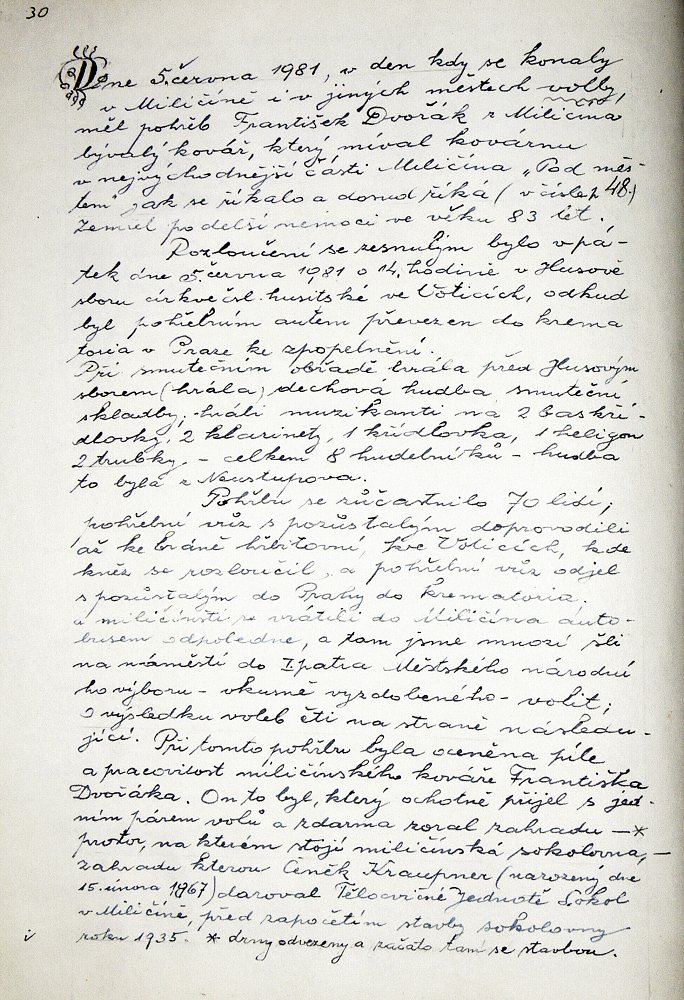 30
Dne 5. června 1981, v den kdy se konaly
v Miličíně i v jiných městech volby,
měl pohřeb František Dvořák z Miličína
bývalý kovář, který míval kovárnu
v nejvýchodnější části Miličína „Pod měs-
tem" jak se říkalo a donud říká (v čísle p. 48.)
Zemřel po delší nemoci ve věku 83 let.
Rozloučení se zesnulým bylo v pá-
tek dne 5. června 1981 o 14. hodině v Husově
sboru církve čsl. husitské ve Voticích, odkud
byl pohřebním autem převezen do krema
toria v Praze ke zpopelnění.
Při smutečním obřadě hrála před Husovým
sborem (hrála) dechová hudba smuteční
skladby; hráli muzikanti na 2 baskří-
dlovky, 2 klarinety, 1 křídlovka, 1 heligon
2 trubky. - celkem 8 hudebníků - hudba
to byla z Neustupova.
Pohřbu se zůčastnilo 70 lidí;
pohřební vůz s pozůstalým doprovodili
až ke bráně hřbitovní, ve Voticích, kde
kněz se rozloučil, a pohřební vůz odjel
s pozůstalým do Prahy do krematoria.
a miličínští se vrátili do Miličína auto-
busem odpoledne, a tam jsme mnozí šli
na náměstí do I. patra Městského národní
ho výboru - vkusně vyzdobeného - volit;
o výsledku voleb čti na straně následu-
jící. Při tomto pohřbu byla oceněna píle
a pracovitost miličínského kováře Františka
Dvořáka. On to byl, který ochotně přijel s jed-
ním párem volů a zdarma zoral zahradu —*
prostor, na kterém stojí miličínská sokolovna, —
zahradu kterou Čeněk Kraupner (narozený dne
15. února 1967) daroval Tělocvičné Jednotě Sokol
v Miličíně, před započetím stavby sokolovny
roku 1935. * drny odvezeny a začato tam se stavbou.